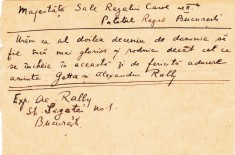 Majestății Sale Regelui Carol II
Palatul Regal București
Urăm ca al doilea deceniu de domnie să
fie încă mai glorios și rodnic decât cel ce
se încheie în această zi de fericită aducere
aminte Getta și Alexandru Rally
Exp. Al. Rally
St. Lagată No 1.
București